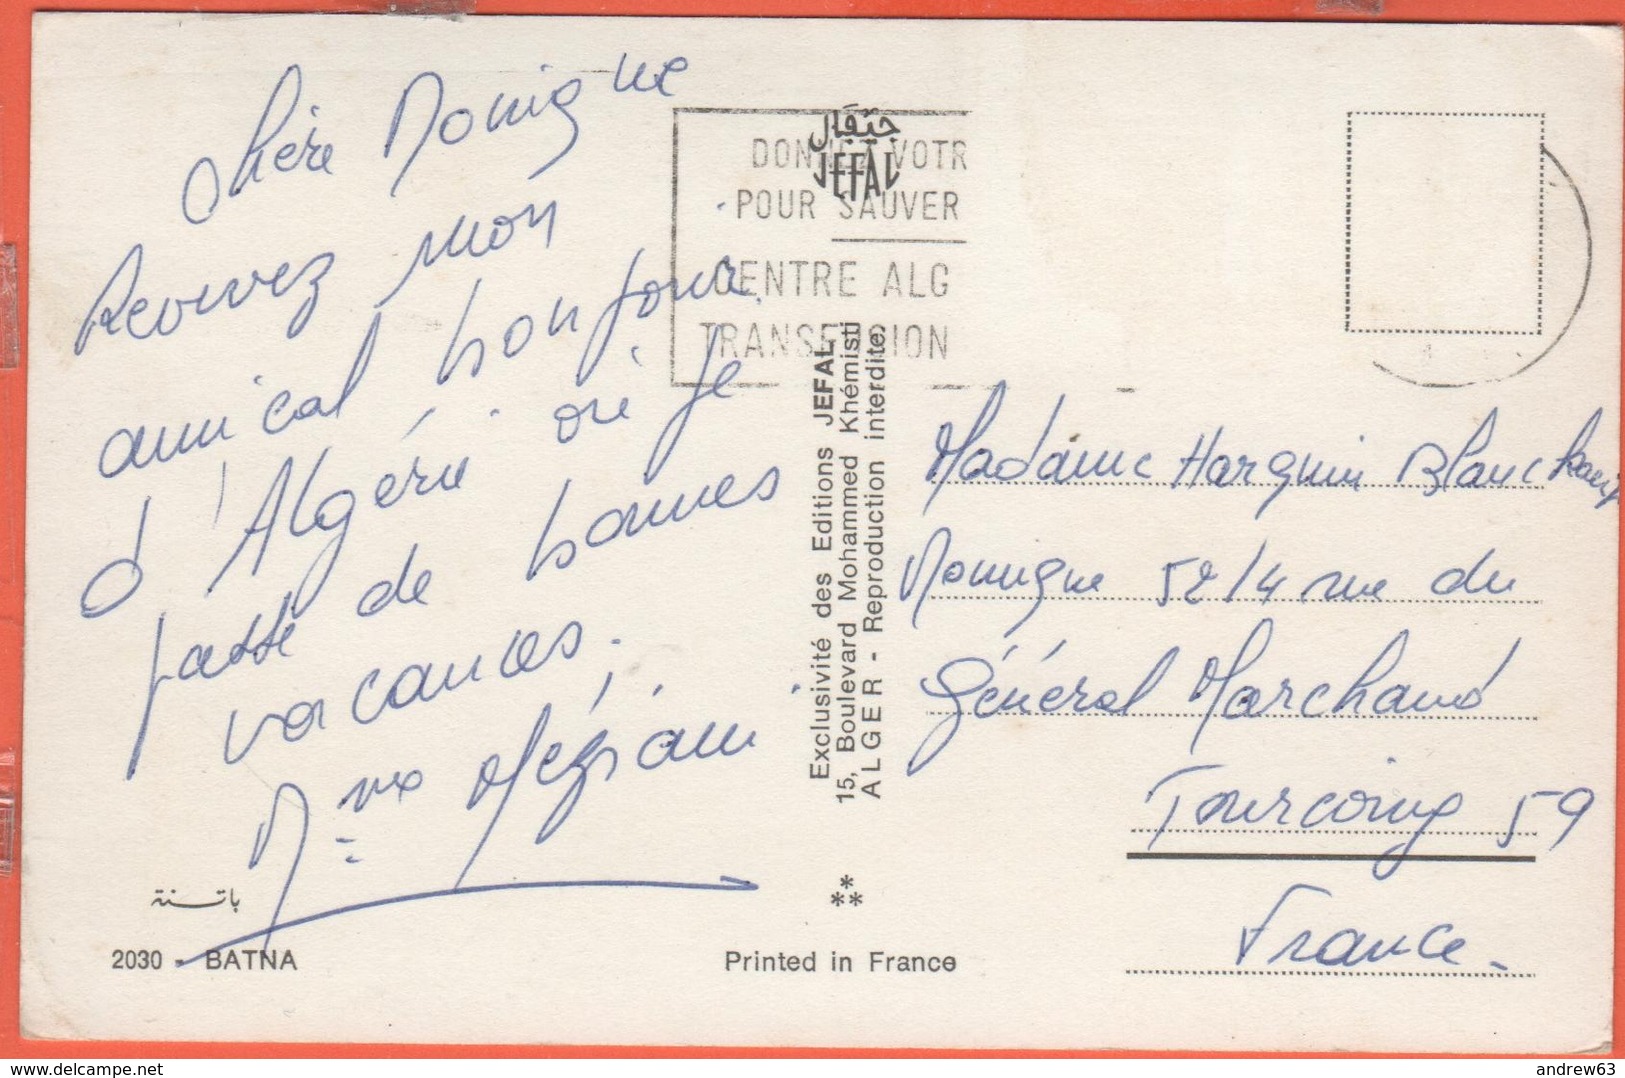 chère Monique
Recevez mon
amical bonjour
d'Algérie où je
passe de bonnes
vacances.
Mme Méziani
باتنة
2030 - BATNA
جيفال
JEFAL
DONNEZ VOTR
POUR SAUVER
CENTRE ALG
TRANSFUSION
Exclusivité des Editions JEFAL
15, Boulevard Mohammed Khémisti
ALGER - Reproduction interdite
Printed in France
Madame Harquin Blanchard
Monique 52/4 rue du
Général Marchand
Tourcoing 59
France.
delcampe.net
andrew63